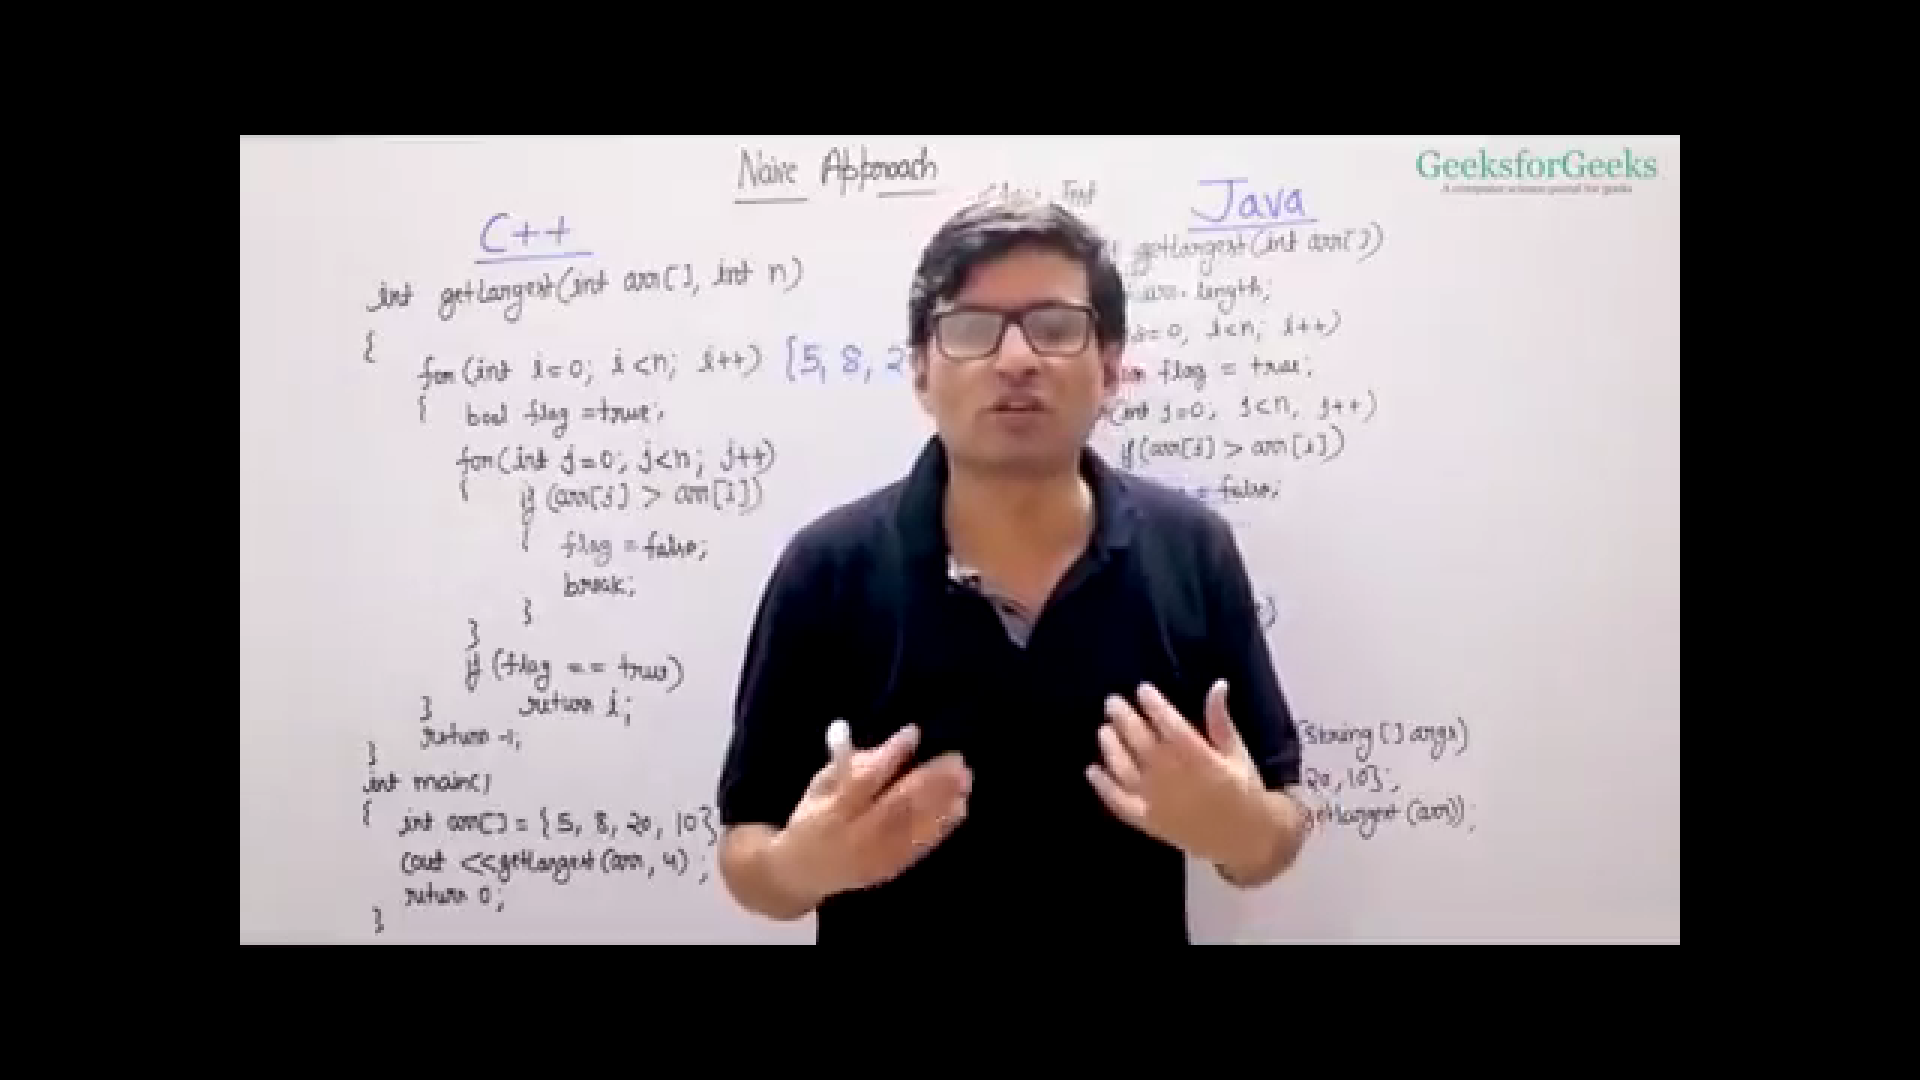 Naive Approach
GeeksforGeeks
A computer science portal for geeks
C++
int getLargest(int arr[], int n)
{
for(int i=0; i<n; i++) {5, 8, 2
{ bool flag =true;
for(int j=0; j<n; j++)
{ if (arr[j] > arr[i])
{ flag = false;
break;
}
}
if (flag == true)
return i;
}
return -1;
}
int main()
{
int arr[] = {5, 8, 20, 10}
cout <<getLargest(arr, 4) ;
return 0;
}
Java
getLargest(int arr[])
arr. length;
i=0, i<n; i++)
flag = true;
(int j=0; j<n, j++)
if(arr[j] > arr[i])
= false;
(String [] args)
20, 10};
getLargest (arr));